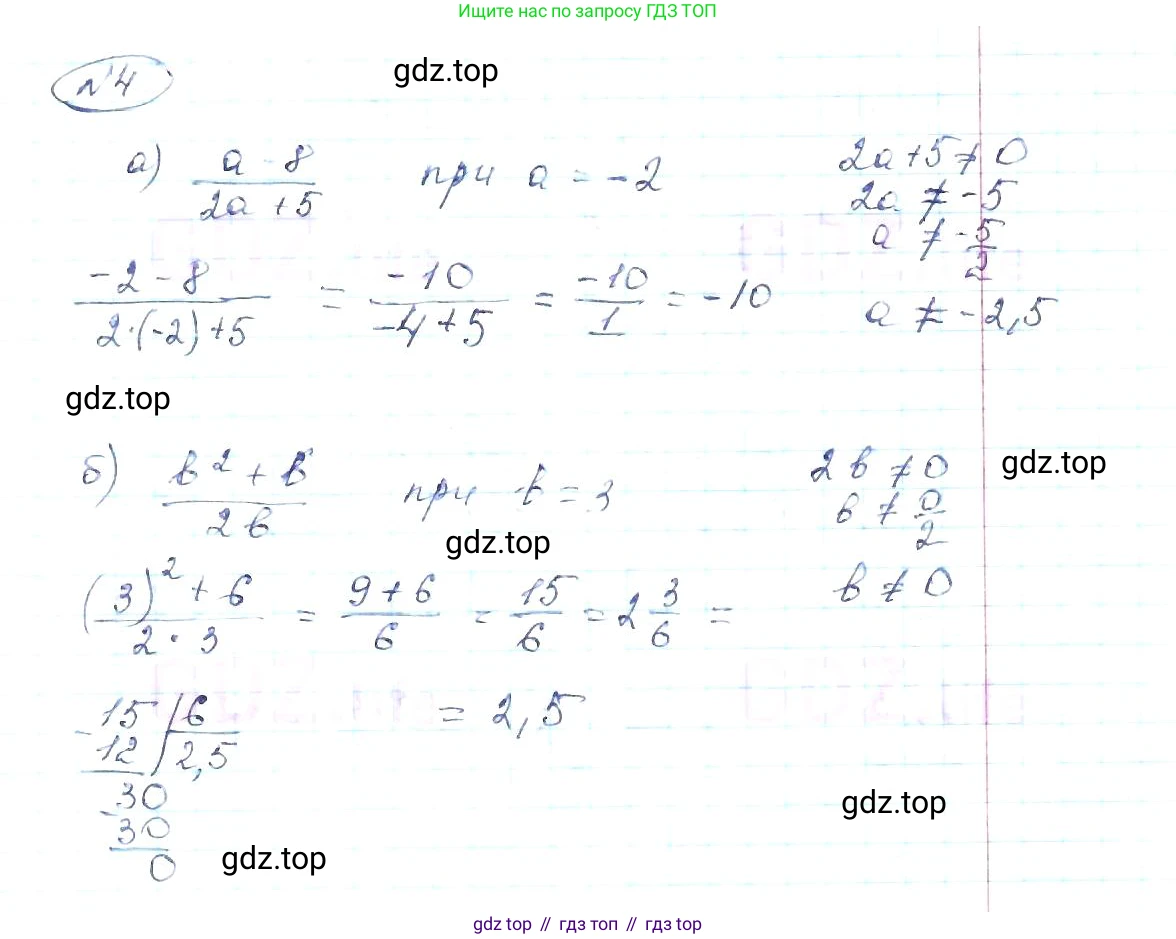 Ищите нас по запросу ГДЗ ТОП
№4
gdz.top
а) (a - 8)/(2a + 5) при a = -2
2a + 5 ≠ 0
2a ≠ -5
a ≠ -5/2
a ≠ -2,5
(-2 - 8)/(2·(-2) + 5) = -10/(-4 + 5) = -10/1 = -10
gdz.top
б) (b² + b)/(2b) при b = 3
2b ≠ 0
gdz.top
b ≠ 0/2
b ≠ 0
gdz.top
((3)² + 6)/(2 · 3) = (9 + 6)/6 = 15/6 = 2 3/6 =
= 2,5
15 | 6
- 12 | 2,5
- 30
30
0
gdz.top
gdz.top
gdz top // гдз топ // gdz top